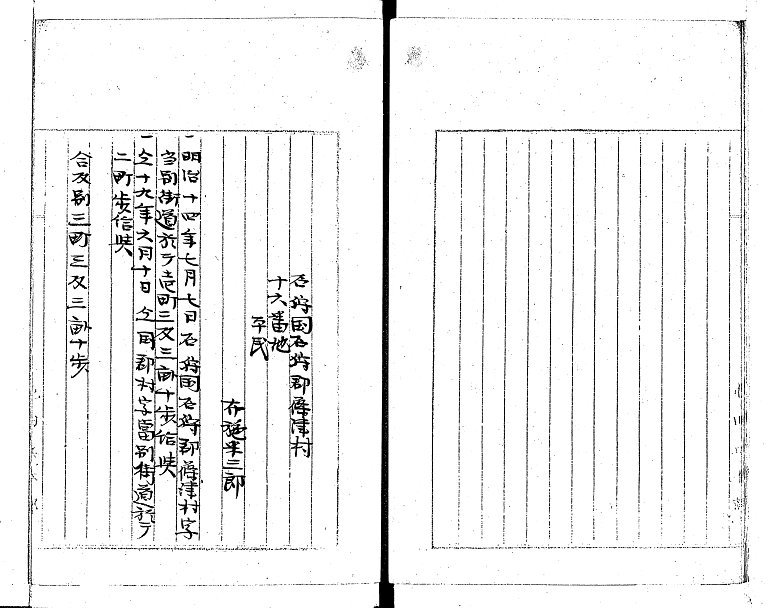 石狩国石狩郡篠津村
十六番地
平民
布施米三郎
一明治十四年七月七日石狩国石狩郡篠津村字
当別街道於テ壱町三反三畝十歩貸
一仝十九年六月十日仝国郡村字當別街道於テ
二町歩貸
合反別三町三反三畝十歩